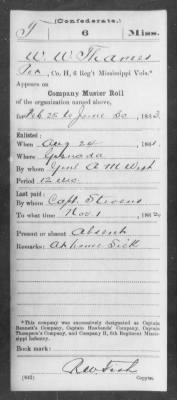 (Confederate.)
T 6 Miss.
W. W. Thames
Pvt, Co. H, 6 Reg't Mississippi Vols.*
Appears on
Company Muster Roll
of the organization named above,
for Feb 28 to June 30, 1863.
Enlisted:
When Aug 24, 1861.
Where Grenada
By whom Genl A M West
Period 12 mo.
Last paid:
By whom Capt. Stevens
To what time Nov 1, 1862.
Present or absent Absent
Remarks: At home Sick
*This company was successively designated as Captain
Bennett's Company, Captain Rowlands' Company, Captain
Thompson's Company, and Company H, 6th Regiment Mississippi
Infantry.
Book mark:
(642) Copyist.